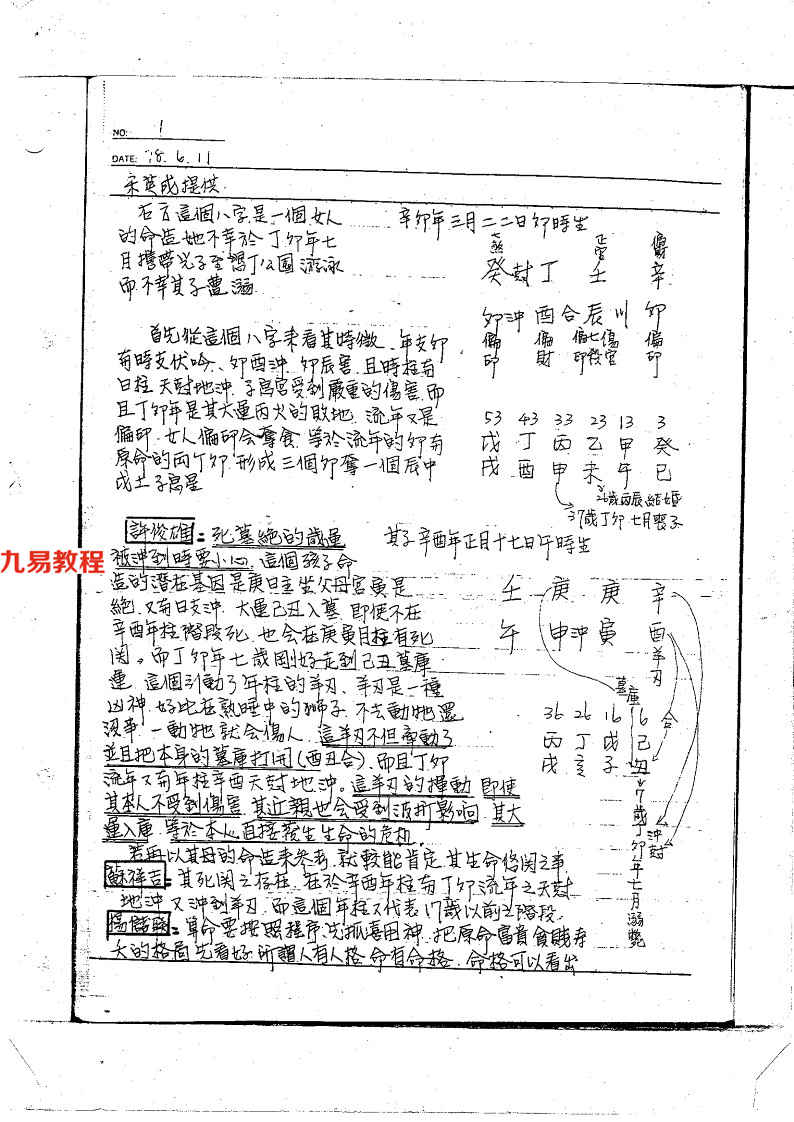 NO: 1
DATE: 78.6.11
宋英成提供.
右方這個八字是一個女人
的命造她不幸於丁卯年七
月攜帶兒子至 公園游泳
而不幸其子遭溺
辛卯年三月二二日卯時生
煞 正官 偏財
癸 尅 丁 壬 辛
卯 沖 酉 合 辰 川 卯
偏印 偏財 偏七傷印殺官 偏印
首先從這個八字來看其特徵、年支卯
有時支伏吟、卯酉沖、卯辰害、且時柱有
日柱天尅地沖、子息宮受到嚴重的傷害、而
且丁卯年是其大運丙火的敗地、流年又是
偏印、女人偏印會奪食、等於流年的卯有
原命的兩個卯、形成三個卯奪一個辰中
戊土子息星
53 43 33 23 13 3
戊 丁 丙 乙 甲 癸
戌 酉 申 未 午 巳
26歲丙辰結婚
37歲丁卯七月喪子
許俊雄:死墓絕的歲運
被沖到時要小心、這個孩子命
造的潛在基因是庚日主坐父母宮寅是
絕、又有日支沖、大運己丑入墓、即使不在
辛酉年柱階段死、也会在庚寅月柱有死
関。而丁卯年七歲剛好走到己丑墓庫
運、這個引動了年柱的羊刃、羊刃是一種
凶神、好比在熟睡中的獅子、不去動牠還
沒事、一動牠就会傷人、這羊刃不但牽動了
並且把本身的墓庫打開(酉丑合)、而且丁卯
流年又有年柱辛酉天尅地沖。這羊刃的撞動、即使
其本人不受到傷害、其近親也会受到波折影响、其大
運入庫、等於本人直接發生生命的危机.
其子辛酉年正月十七日午時生
壬 庚 庚 辛
午 申 沖 寅 酉 羊刃
墓庫
36 26 16 6 合
丙 丁 戊 己
戌 亥 子 丑
7歲丁卯年七月溺斃
沖尅
若再以其母的命造來參考、就較能肯定其生命攸関之事
蘇祥吉:其死関之存在、在於辛酉年柱有丁卯流年之天尅
地沖、又沖到羊刃、而這個年柱又代表17歲以前之階段.
:算命要按照程序、先抓喜用神、把原命富貴貧賤壽
夭的格局先看好、所謂人有人格、命有命格、命格可以看出
九易教程